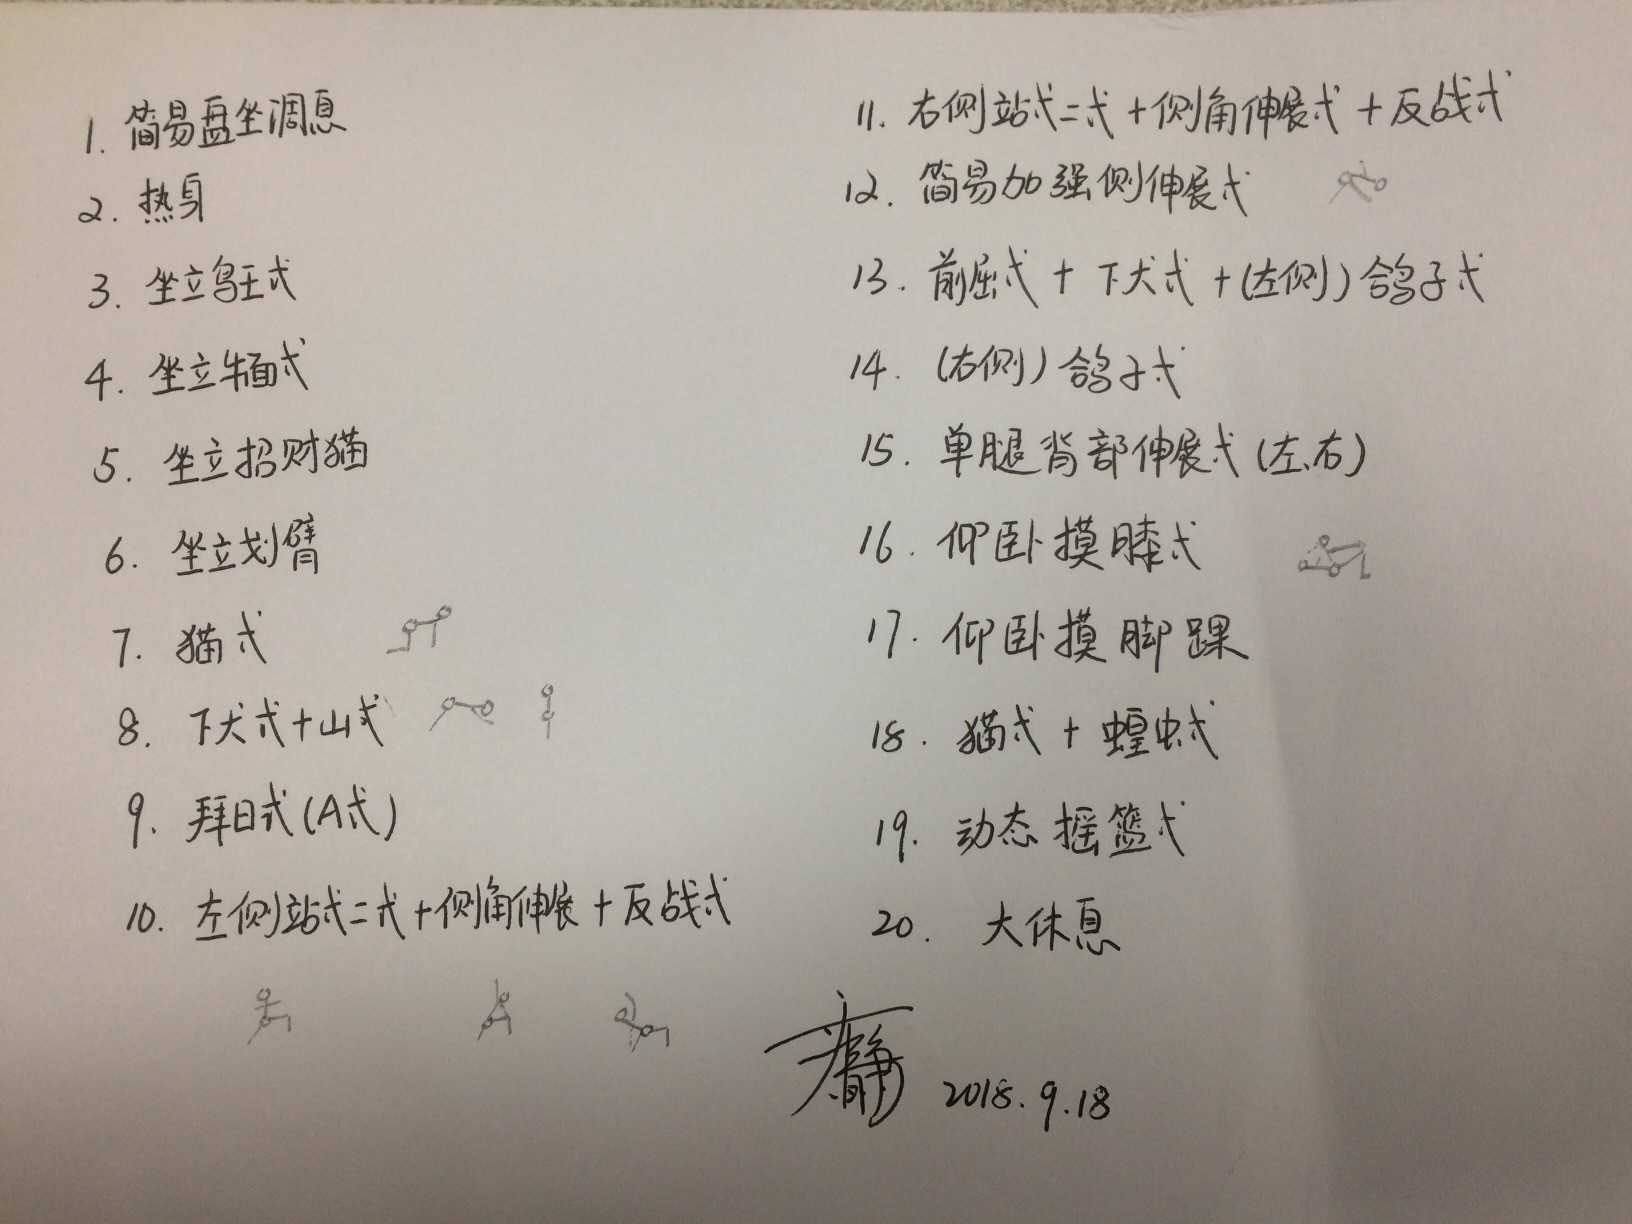 1. 简易盘坐调息
2. 热身
3. 坐立鸟王式
4. 坐立牛面式
5. 坐立招财猫
6. 坐立划臂
7. 猫式
8. 下犬式+山式
9. 拜日式(A式)
10. 左侧站式二式+侧角伸展+反战式
11. 右侧站式二式+侧角伸展式+反战式
12. 简易加强侧伸展式
13. 前屈式+下犬式+(左侧)鸽子式
14. (右侧)鸽子式
15. 单腿背部伸展式(左、右)
16. 仰卧摸膝式
17. 仰卧摸脚踝
18. 猫式+蝗虫式
19. 动态摇篮式
20. 大休息
2018.9.18